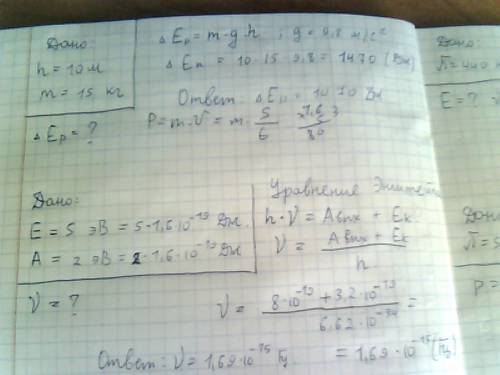 Дано:
h = 10 м
m = 15 кг
ΔEр = ?
ΔEp = m·g·h ; g = 9,8 м/с²
ΔEп = 10·15·9,8 = 1470 (Дж)
Ответ: ΔEп = 1070 Дж
P = m·V = m· S/6
Дано:
E = 5 эВ = 5·1,6·10⁻¹⁹ Дж.
A = 2 эВ = 2·1,6·10⁻¹⁹ Дж
ν = ?
Уравнение
h·ν = Aвых + Eк
ν = (Aвых + Eк)/h
ν = (8·10⁻¹⁹ + 3,2·10⁻¹⁹)/(6,62·10⁻³⁴) =
= 1,69·10⁻¹⁵ (Гц)
Ответ: ν = 1,69·10⁻¹⁵ Гц
Дано:
E = ?
До
P =